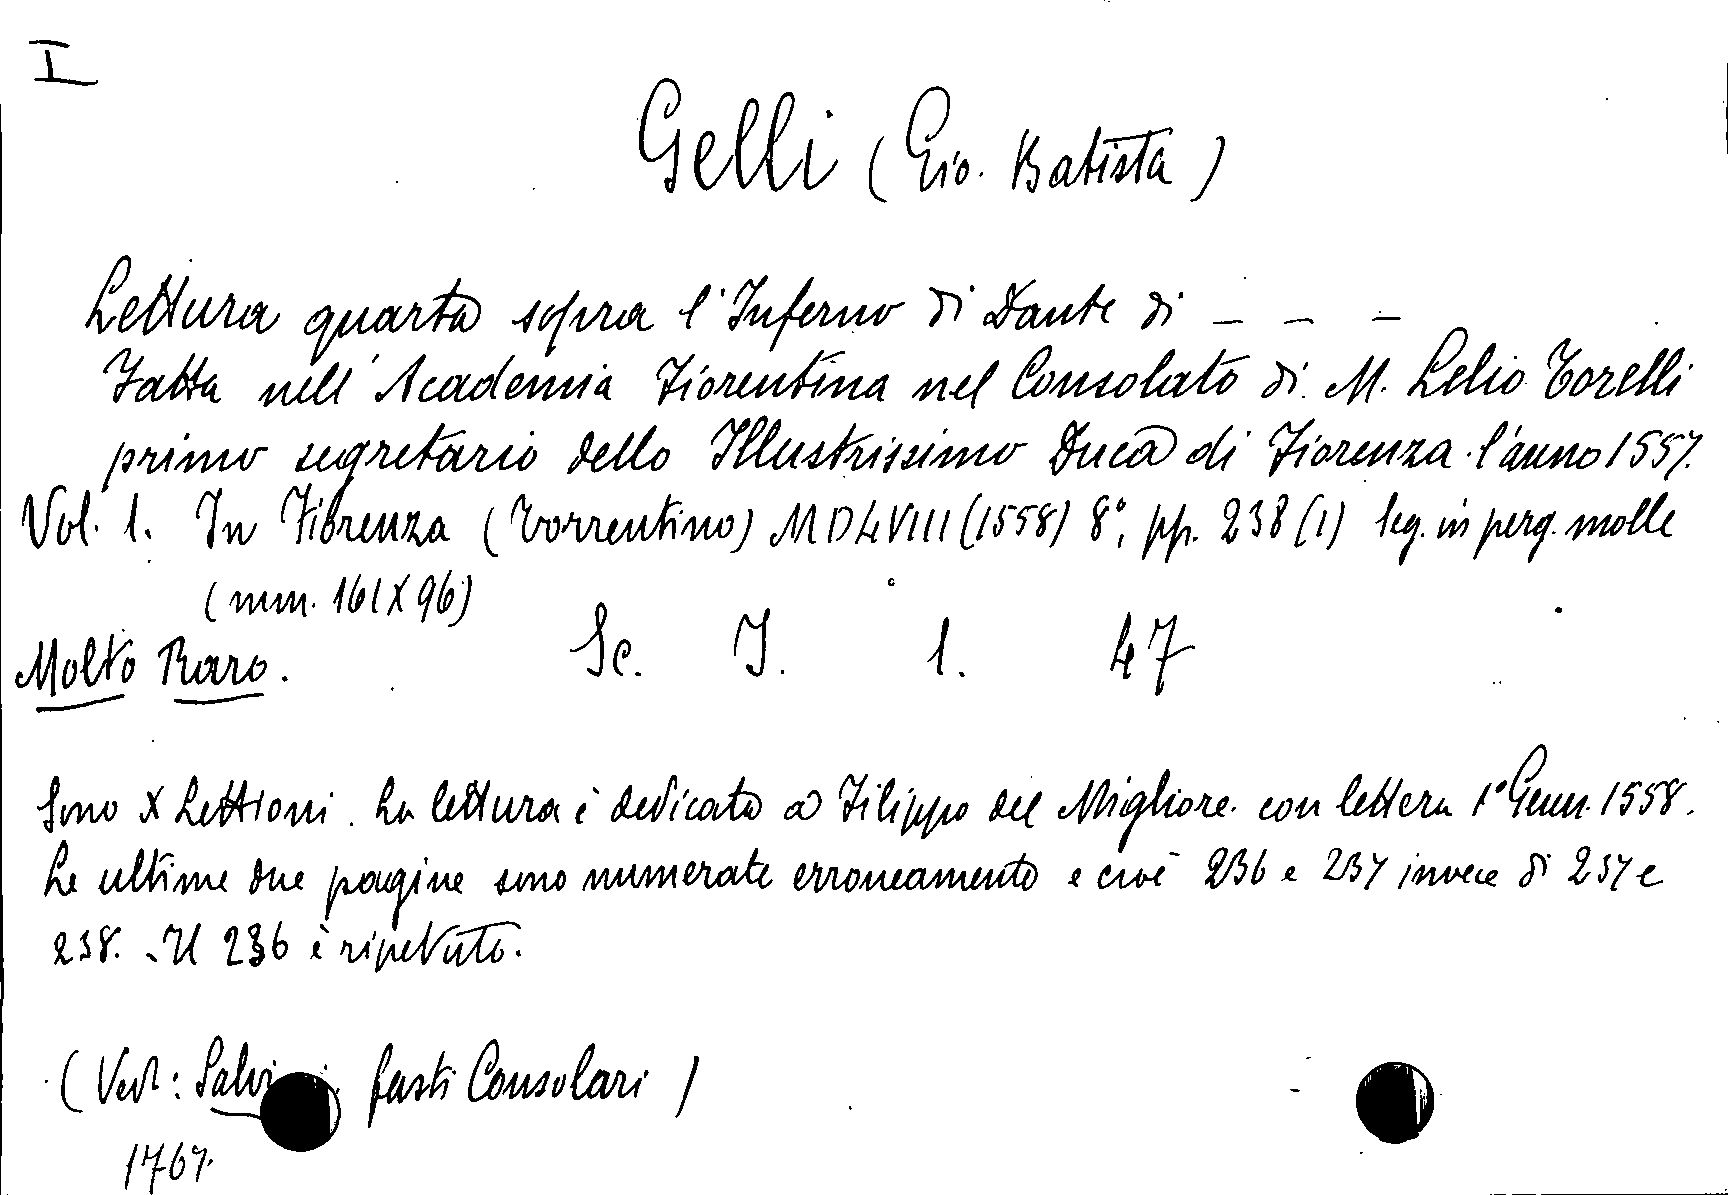 I
Gelli (Gio. Batista)
Lettura quarta sopra l'Inferno di Dante di _ _ _
Fatta nell'Academia Fiorentina nel Consolato di M. Lelio Torelli
primo segretario dello Illustrissimo Duca di Fiorenza l'anno 1557.
Vol. 1. In Fiorenza (Torrentino) MDLVIII (1558) 8°, pp. 238 (1) leg. in perg. molle
(mm. 161 X 96)
Molto Raro. Sc. I. 1. 47
Sono X Lettioni. La lettura è dedicata a Filippo del Migliore con lettera 1° Genn. 1558.
Le ultime due pagine sono numerate erroneamento e cioè 236 e 237 invece di 237 e
238. Il 236 è ripetuto.
(Ved: fasti Consolari)
1767.